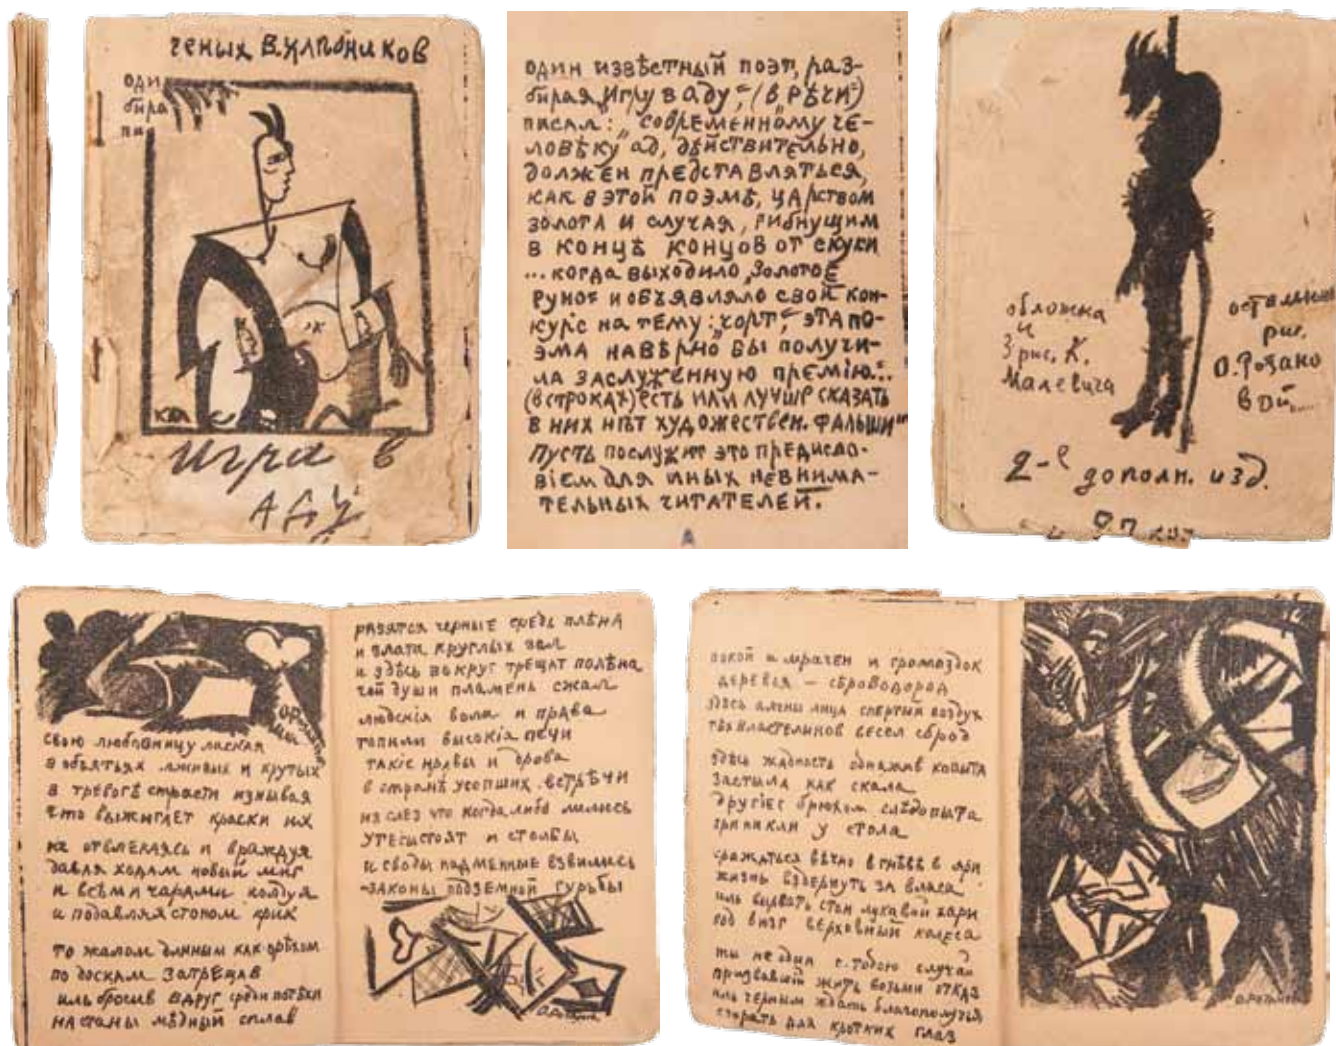 ченых В. Хлѣбников
оди
бира
пи
Игра в
Аду
один извѣстный поэт, раз-
бирая „Игру в аду“, (в „Рѣчи“)
писал: „современному че-
ловѣку ад, дѣйствительно,
должен представляться,
как в этой поэмѣ, царством
золота и случая, гибнущим
в концѣ концов от скуки
... когда выходило „Золотое
руно“ и объявляло свой кон-
курс на тему: „чорт“, эта по-
эма навѣрно бы получи-
ла заслуженную премію“..
(в строках) есть или лучше сказать
в них нѣт художествен. фальши“
Пусть послужит это предисло-
віем для иных невнима-
тельных читателей.
обложка
и
3 рис. К.
Малевича
остальные
рис.
О. Розано
вой....
2-е дополн. изд.
О. Розанова
свою любовницу лаская
в объятьях лживых и крутых
в тревогѣ страсти изнывая
что выжигает краски их
не отвлекаясь и враждуя
давля ходам новый миг
и всѣми чарами колдуя
и подавляя стоном крик
то жалом длинным как орѣхом
по доскам затрещав
иль бросив вдруг среди потѣхи
на станы мѣдный сплав
разятся черные средь плѣна
и злата круглых зал
и здѣсь вокруг трещат полѣна
чей души пламень сжал
людскія воля и права
топили высокія печи
такіе нравы и дрова
в странѣ усопших встрѣчи
из слез что когда либо лились
утесы стоят и столбы
и своды надменные взвились
законы подземной гурьбы
О. Розанова
покой и мрачен и громоздок
деревья — сѣроводород
здѣсь алчны лица спертый воздух
тѣх властелинов весел сброд
здѣсь жадность обнажив копыта
застыла как скала
другіе с брюхом слѣдопыта
приникли у стола
сражаться вѣчно в гнѣвѣ в яри
жизнь вздернуть за власа
иль вырвать стон лукавой хари
под визг верховный колеса
ты не один с тобою случай
призвавший жить возьми отказ
иль черным ждать благополучья
сгорать для кротких глаз
О. Розанова